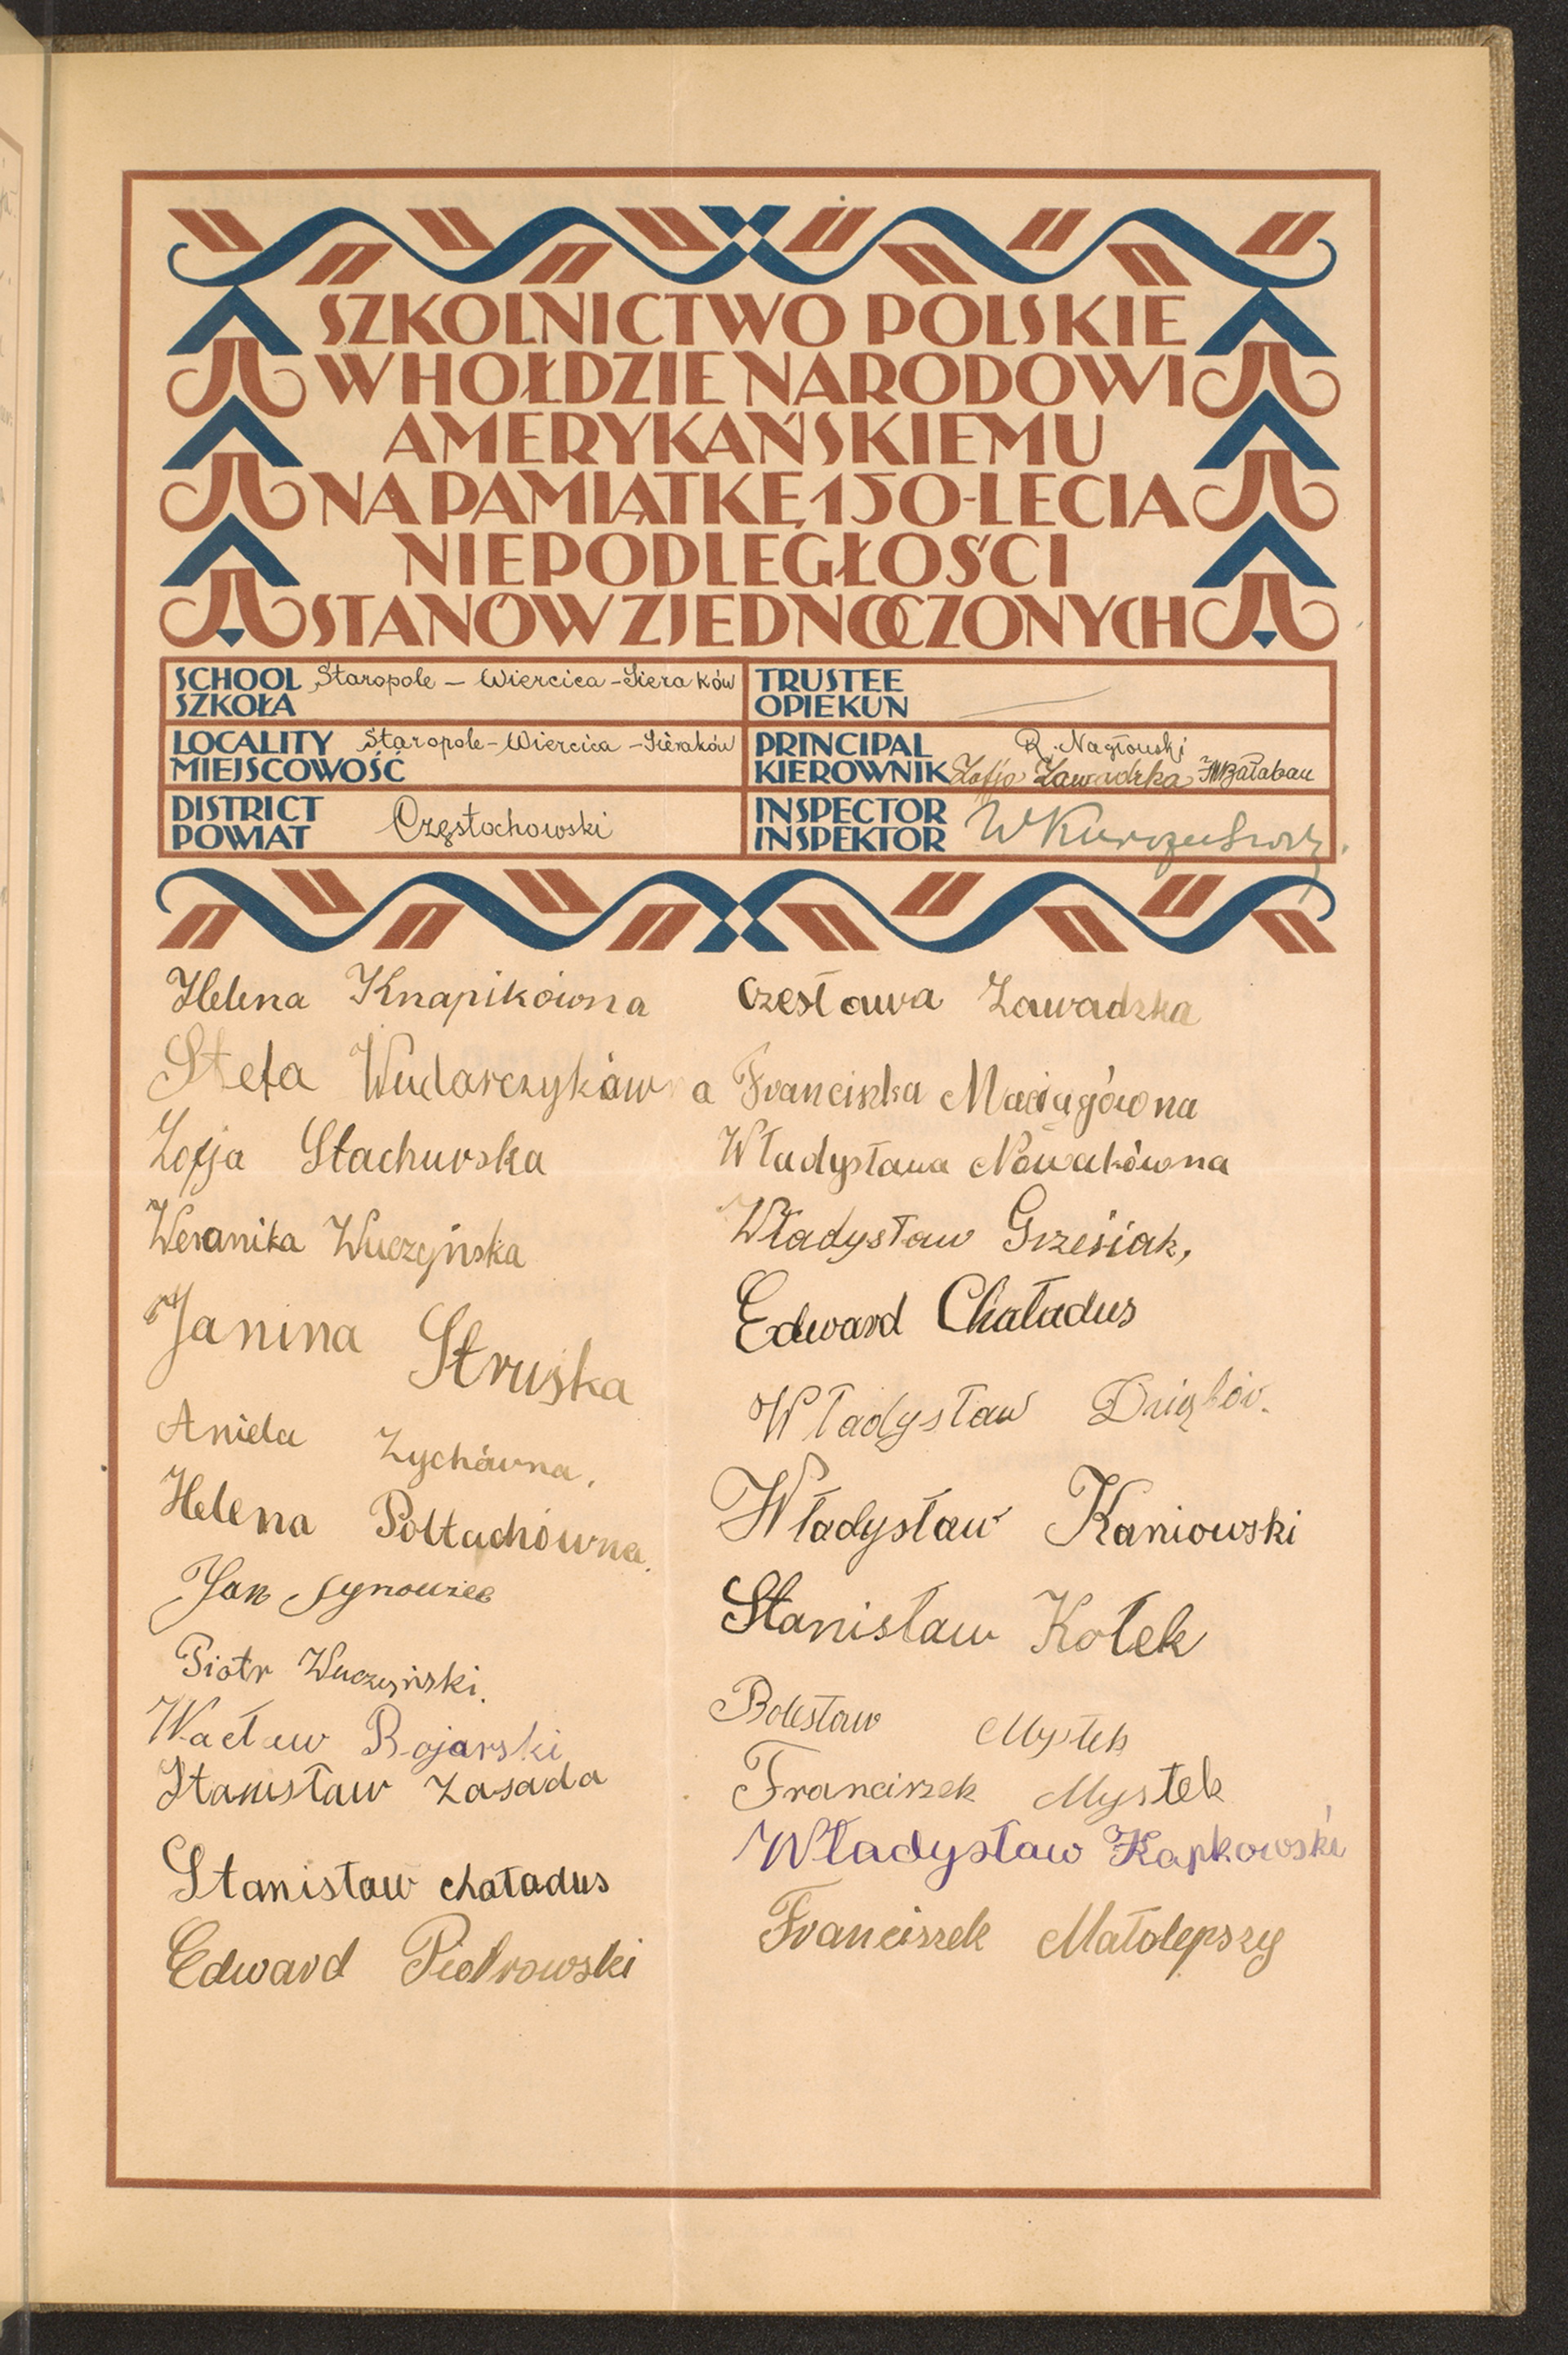 SZKOLNICTWO POLSKIE
W HOŁDZIE NARODOWI
AMERYKAŃSKIEMU
NA PAMIĄTKĘ 150-LECIA
NIEPODLEGŁOŚCI
STANÓW ZJEDNOCZONYCH
SCHOOL Staropole – Wiercica – Sieraków
SZKOŁA
TRUSTEE
OPIEKUN
LOCALITY Staropole – Wiercica – Sieraków
MIEJSCOWOŚĆ
PRINCIPAL R. Nagłowski
KIEROWNIK Zofja Zawadzka Bałaban
DISTRICT Częstochowski
POWIAT
INSPECTOR
INSPEKTOR
Helena Knapikówna
Stefa Wudarczykówna
Zofja Stachurska
Weronika Wuczyńska
Janina Struska
Aniela Zychówna.
Helena Półtachówna.
Jan Synowiec
Piotr Wuczyński.
Wacław Bojarski
Stanisław Zasada
Stanisław Chaładus
Edward Piotrowski
Czesława Zawadzka
Franciszka Maciągówna
Władysława Nowakówna
Władysław Grzesiak,
Edward Chaładus
Władysław
Władysław Kaniowski
Stanisław Kołek
Bolesław Mystek
Franciszek Mystek
Władysław Kapkowski
Franciszek Małolepszy